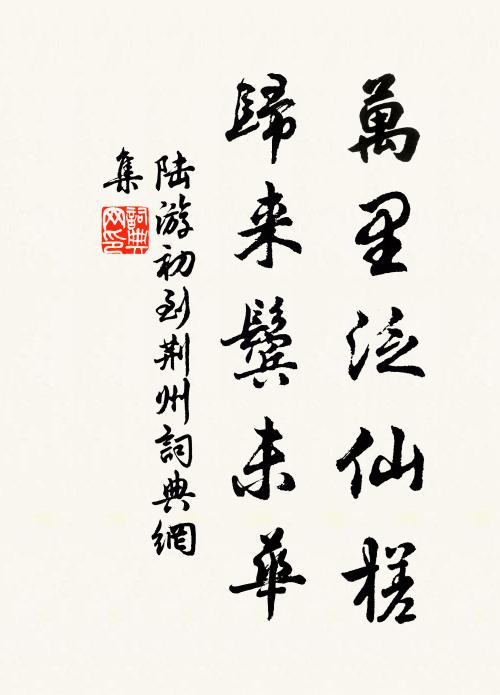 萬里泛仙槎
歸来鬓未華
陆游初到荆州詞典網
集
詞典
网印